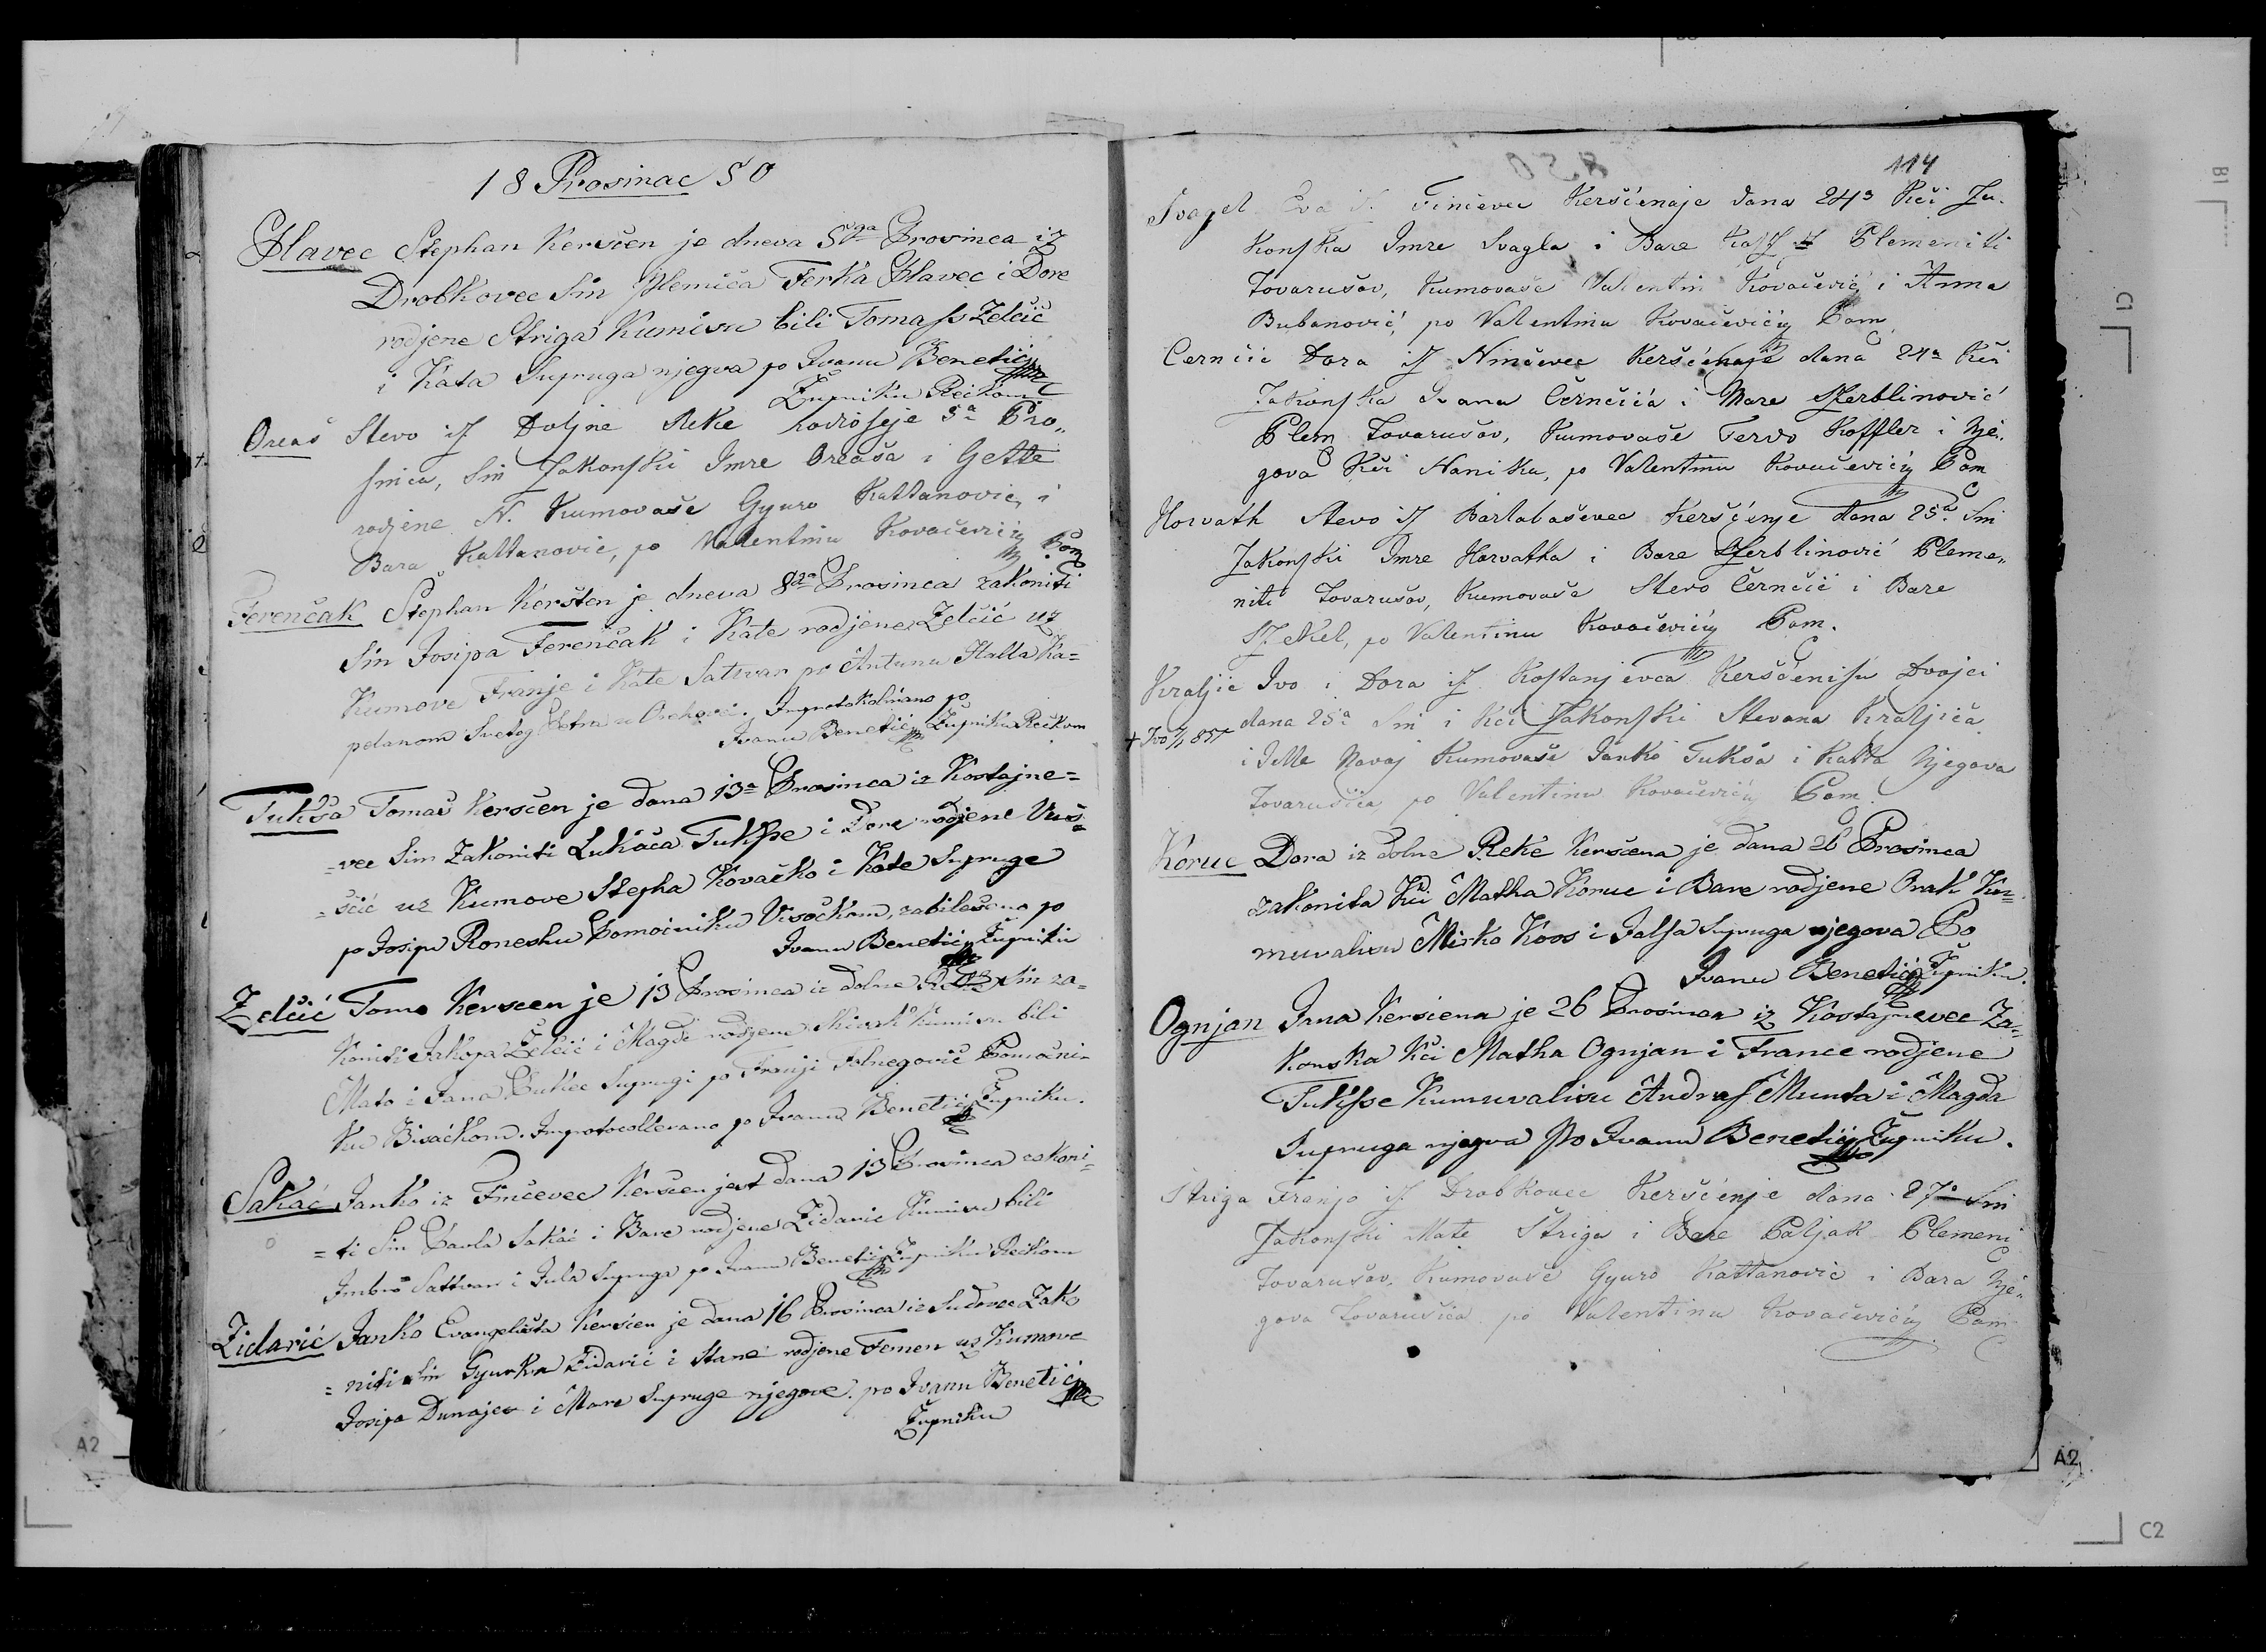 18 Prosinac 50
Glavec Stephan Kerščen je dneva 5ga Prosinca iz
Drobkovec Sin Plemića Ferka Glavec i Dore
rodjene Striga Kumisu bili Tomass Zelčić
i Kata Supruga njegva po Ivanu Benetić
Župniku Rečkom
Oreaš Stevo iz Doljne Reke 5a Pro„
sinca, Sin Zakonski Imre Oreaša i Gette
rodjene N. Kumovaše Gyuro Kattanović, i
Bara Kattanović, po Valentinu Kovačeviću Pom
Ferenčak Stephan Keršten je dneva 8ga Prosinca zakoniti
Sin Josipa Ferenčak i Kate rodjene Zelčić uz
Kumove Franje i Kate Sattvar po Antunu Halla Ka=
pelanom Svetog Petra u Orehovci. Inprotokolirano po
Ivanu Benetić Župniku Rečkom
Tukša Tomaš Kerščen je dana 13a Prosinca iz Kostajne=
=vec Sin Zakoniti Lukača Tuksse i Dore rodjene Vuš=
=čić uz Kumove Stepha Kovačko i Kate Supruge
po Josipu Roneshu Pomoćniku Visočkom, zabileženo po
Ivanu Benetić Župniku
Zelčić Tomo Kerscen je 13 Prosinca iz dolne Reke Sin za=
koniti Jakopa Zelčić i Magde rodjene Kumisu bili
Mato i Jana Cukec Suprugi po Franji Folnegović Pomoćni=
ku Bisačkom. Inprotocollerano po Ivanu Benetić Župniku.
Sakač Janko iz Finčevec Kerščen jest dana 13 Prosinca zakoni=
=ti Sin Pavla Sakać i Bare rodjene Židarić Kumisu bili
Imbro Sattvar i Jula Supruga po Ivanu Benetić Župniku Rečkom
Zidarić Janko Evangelista Kerscen je dana 16 Prosinca iz Sudovec Zako
=niti Sin Gyurka Židarić i Stane rodjene Femen uz Kumove
Josipa Dunajev i Mare Supruge njegove. po Ivanu Benetić
Župniku
850
114
Svagel Eva iz Finčevec Kerščenaje dana 24a Kći Za„
konska Imre Svagla i Bare Plemeniti
Tovarušov, Kumovaše Valentin Kovačević i Anna
Bubanović, po Valentinu Kovačeviću Pom
Černčić Dora iz Ninčevec Kerščenaje dana 24a Kći
Zakonska Ivana Černčića i Mare Skerblinović
Plem Tovarušov, Kumovaše Fervo Koffler i Nje„
gova Kći Nanika, po Valentinu Kovačeviću Pom
Horvath Stevo iz Bartabaševec Kerščenje dana 25a Sin
Zakonski Imre Horvatha i Bare Skerblinović Pleme„
niti Tovarušov, Kumovaše Stevo Černčić i Bare
Szekel, po Valentinu Kovačeviću Pom.
Kraljić Ivo i Dora iz Kostanjevca Kerščenisu Dvojci
+ Ivo 857
dana 25a Sin i Kći Zakonski Stevana Kraljića
i Jelle Novaj Kumovaše Janko Tuksa i Katta Njegova
Tovarušica po Valentinu Kovačeviću Pom
Koruc Dora iz dolne Reke Kerščena je dana 26 Prosinca
zakonita Kći Matha Koruc i Bare rodjene Orak Ku=
muvalisu Mirko Koos i Jalsa Supruga njegova Po
Ivanu Benetić Župniku.
Ognjan Jana Kersćena je 26 Prosinca iz Kostajnevec Za=
konska Kći Matha Ognjan i France rodjene
Tuksse Kumuvalisu Andrass Munta i Magda
Supruga njegva po Ivanu Benetić Župniku.
Striga Franjo iz Drobkovec Kerščenje dana 27a Sin
Zakonski Mate Striga i Bare Paljak Plemeni
Tovarušov, Kumovaše Gyuro Kattanović i Bara Nje„
gova Tovarušica po Valentinu Kovačeviću Pom
B1
C1
A2
A2
C2